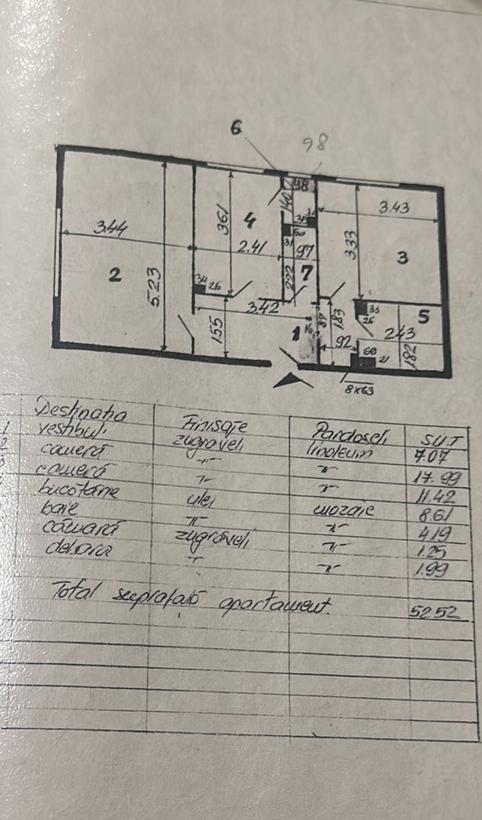 6
98
98
140
361
4
3.43
3.44
2.41
97
3.33
3
2
5.23
222
7
34
26
3.42
1
183
5
26
2.43
155
92
60
21
182
8x63
Destinatia Finisaje Pardoseli SUT
1 vestibul zugraveli linoleum 7.07
2 cameră -"- -"- 17.99
cameră -"- -"- 11.42
bucătărie ulei mozaic 8.61
baie -"- -"- 4.19
cămară zugrăveli -"- 1.25
debara -"- -"- 1.99
Total suprafață apartament. 52.52